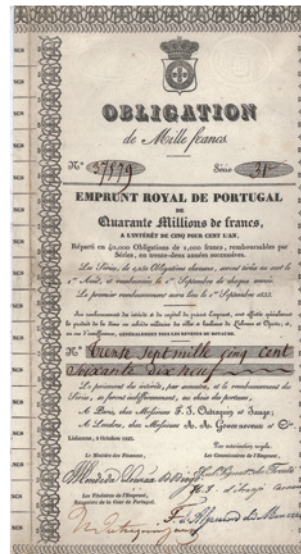 OBLIGATION
de Mille francs.
N.º 37579 Série 31
EMPRUNT ROYAL DE PORTUGAL
DE
Quarante Millions de francs,
A L'INTÉRÊT DE CINQ POUR CENT L'AN,
Réparti en 40,000 Obligations de 1,000 francs, remboursables par
Séries, en trente-deux années successives.
Les Séries, de 1,250 Obligations chacune, seront tirées au sort le
1.er Août, et remboursées le 1.er Septembre de chaque année.
Le premier remboursement aura lieu le 1.er Septembre 1833.
GÉNÉRALEMENT TOUS LES REVENUS DU ROYAUME.
N.º trente sept mille cinq cent
Soixante dix neuf
Le paiement des intérêts, par semestre, et le remboursement des
Séries, se feront indifféremment, au choix des porteurs,
A Paris, chez Messieurs F. J. Outrequin et Jauge;
A Londres, chez Messieurs
Lisbonne, 5 Octobre 1832.
Par autorisation royale.
Le Ministre des Finances, Les Commissaires de l'Emprunt,
Les Titulaires de l'Emprunt,
Banquiers de la Cour de Portugal.